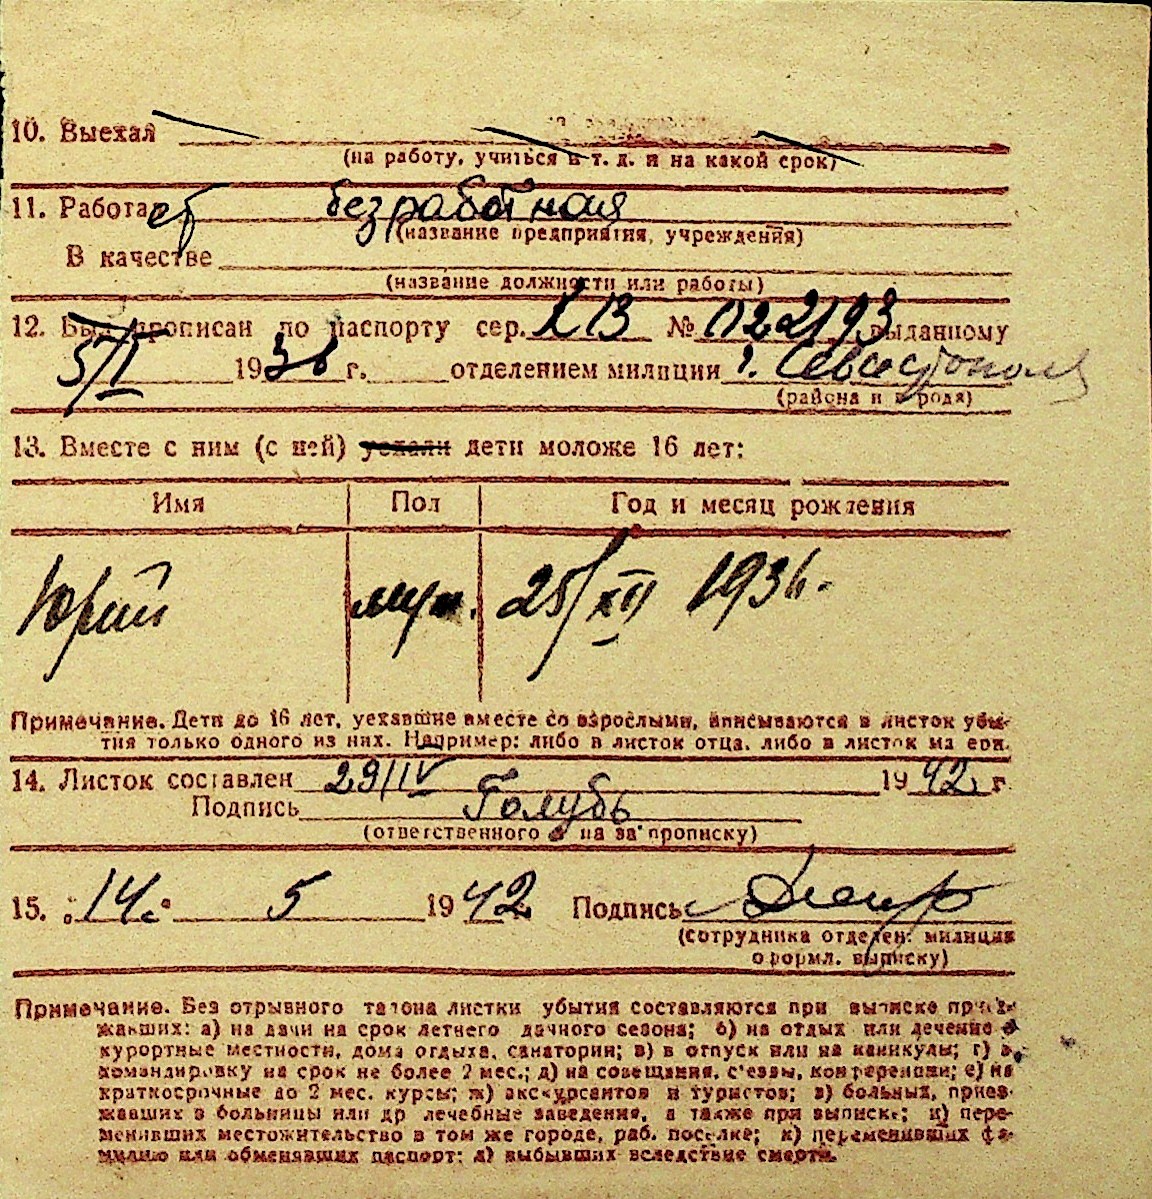 10. Выехал
(на работу, учиться и т. д. и на какой срок)
11. Работает безработная
(название предприятия, учреждения)
В качестве
(название должности или работы)
12. Был прописан по паспорту сер. № 022193 выданному
5/I 1936 г. отделением милиции г. Севастополя
(района и города)
13. Вместе с ним (с ней) уехали дети моложе 16 лет:
Имя Пол Год и месяц рождения
Юрий муж. 25/XII 1936.
Примечание. Дети до 16 лет, уехавшие вместе со взрослыми, вписываются в листок убы-
тия только одного из них. Например: либо в листок отца, либо в листок матери.
14. Листок составлен 29/IV 1942 г.
Подпись Голубь
(ответственного за прописку)
15. 14. 5 1942 Подпись
(сотрудника отделен. милиции
оформл. выписку)
Примечание. Без отрывного талона листки убытия составляются при выписке приез-
жавших: а) на дачи на срок летнего дачного сезона; б) на отдых или лечение в
курортные местности, дома отдыха, санатории; в) в отпуск или на каникулы; г) в
командировку на срок не более 2 мес.; д) на совещания, с'езды, конференции; е) на
краткосрочные до 2 мес. курсы; ж) экскурсантов и туристов; з) больных, приез-
жавших в больницы или др лечебные заведения, а также при выписке; и) пере-
менивших местожительство в том же городе, раб. поселке; к) переменивших фа-
милию или обменявших паспорт; л) выбывших вследствие смерти.